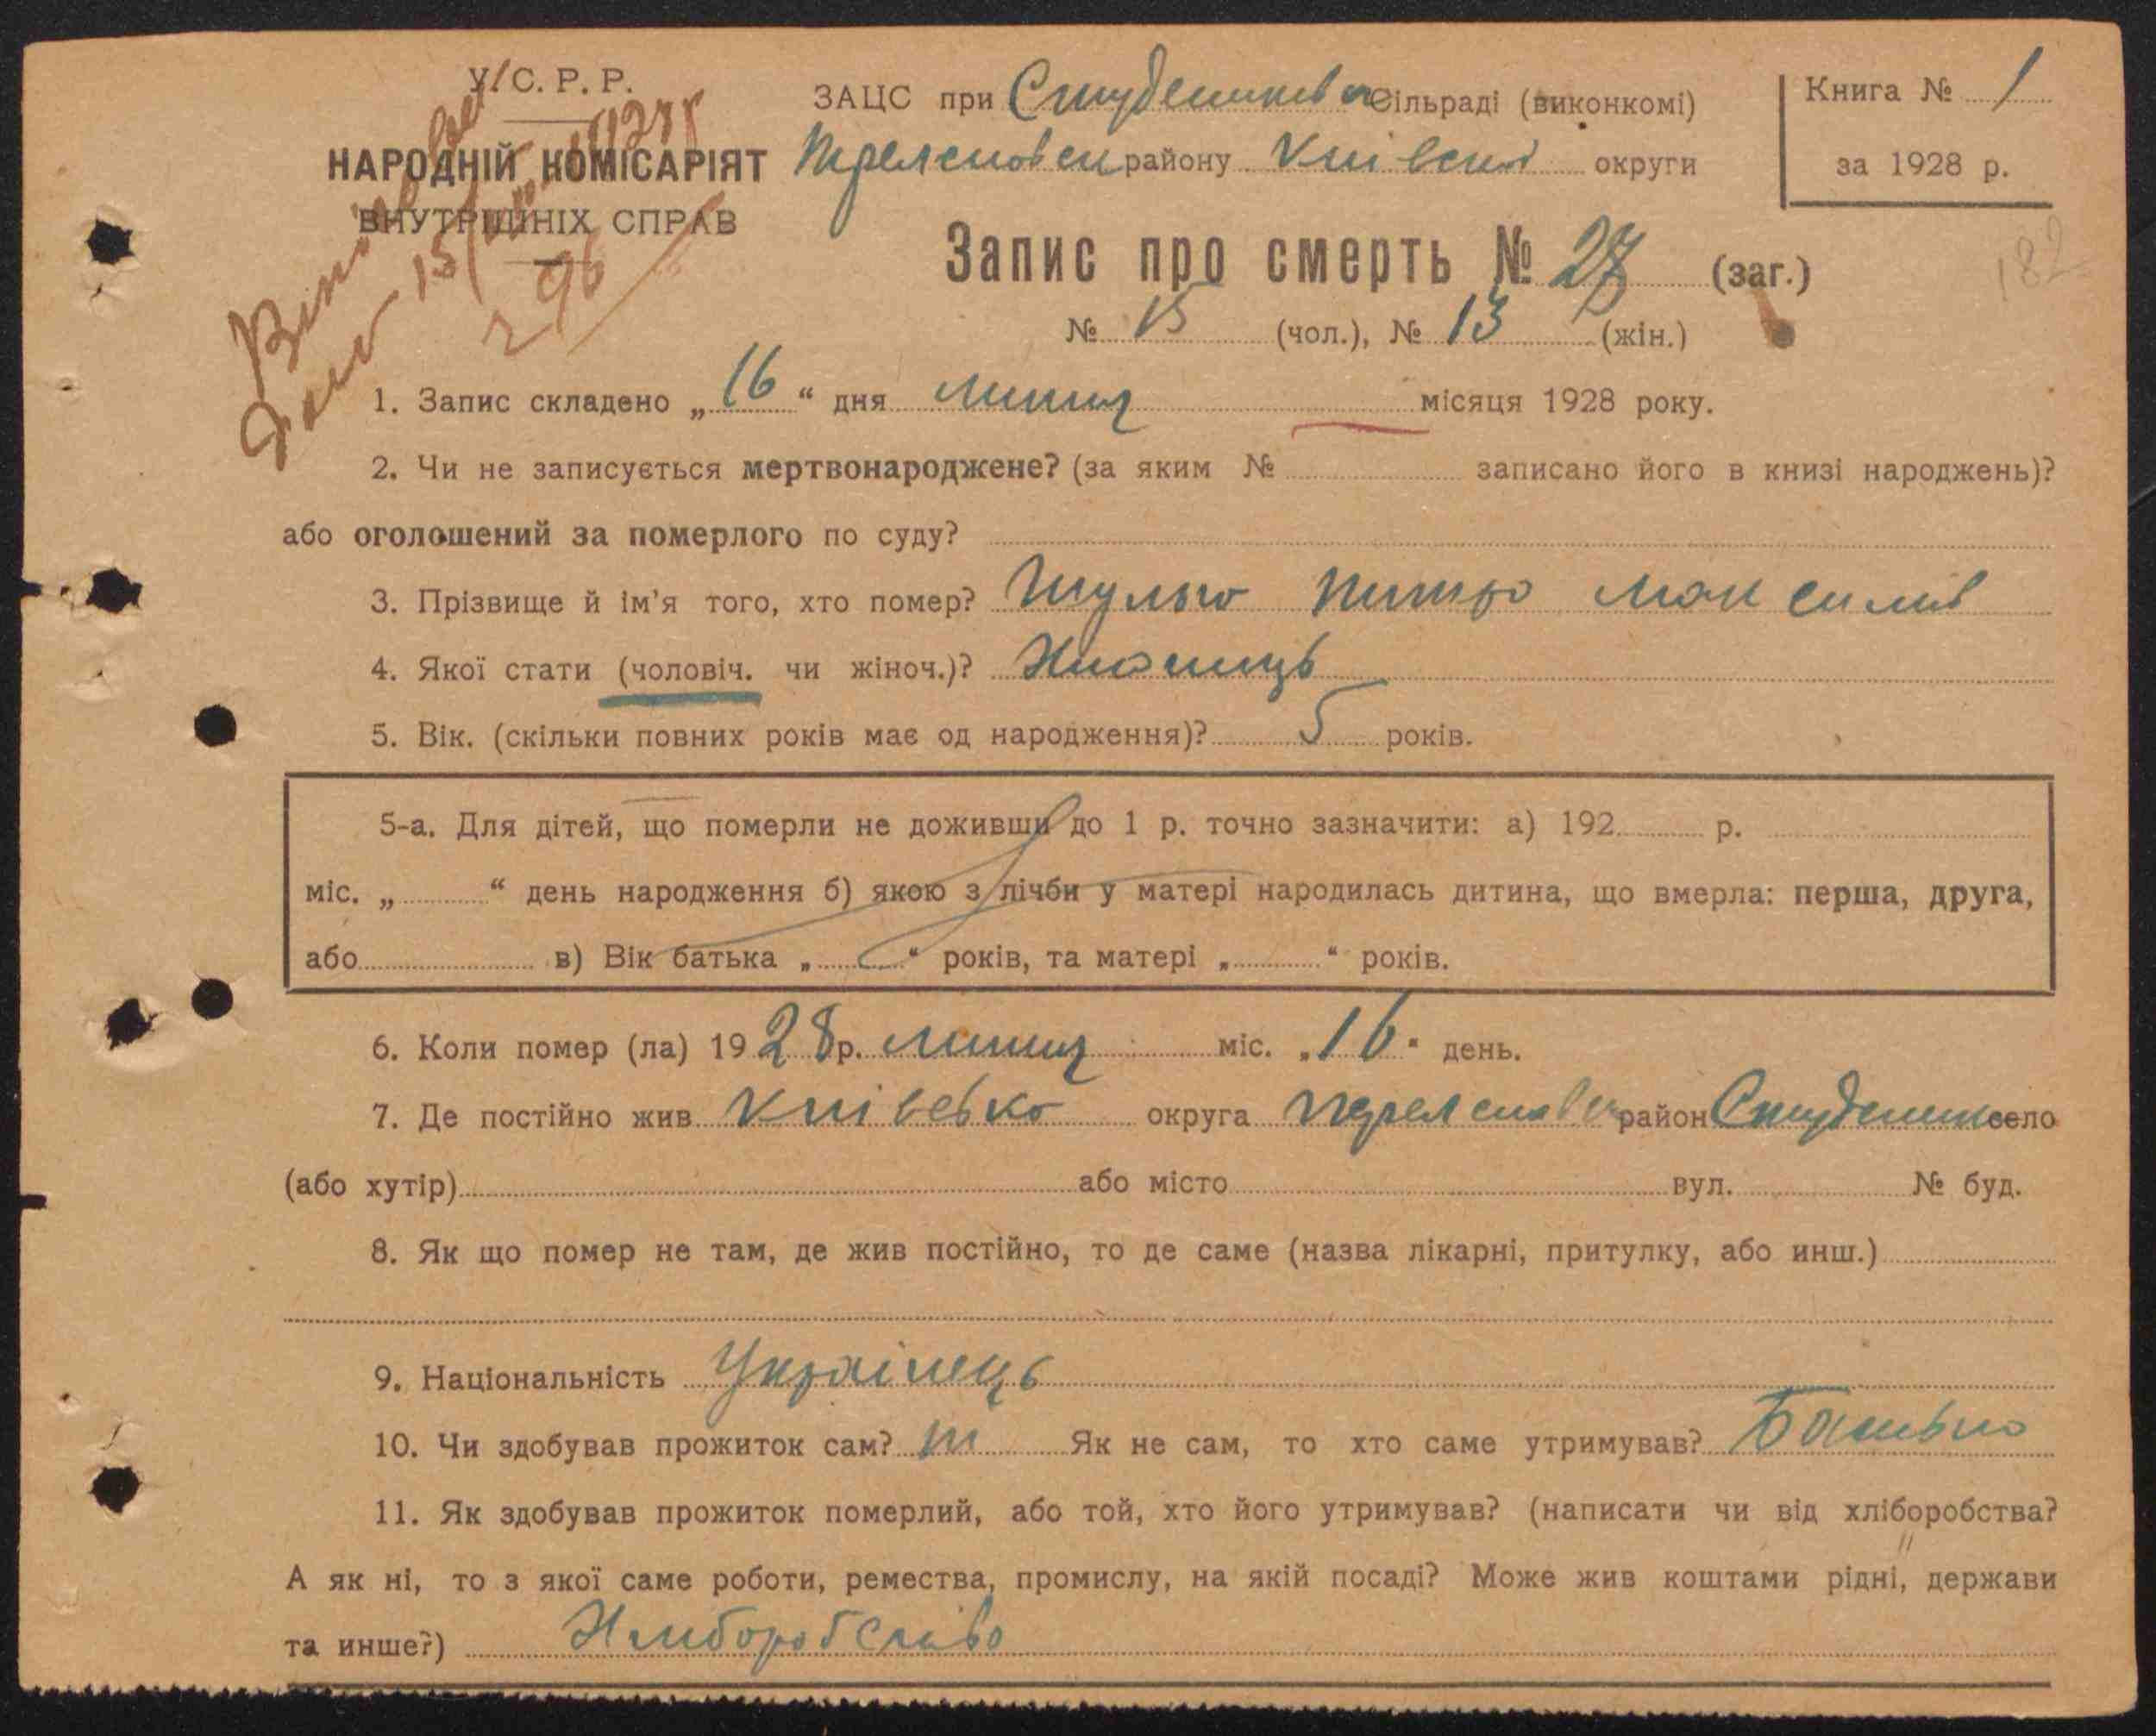 У.С.Р.Р.
НАРОДНІЙ КОМІСАРІЯТ
ВНУТРІШНІХ СПРАВ
296
ЗАЦС при Студениківс сільраді (виконкомі)
Переяславськ району Київської округи
Книга № 1
за 1928 р.
Запис про смерть № 27 (заг.)
182
№ 15 (чол.), № 13 (жін.)
1. Запис складено „16“ дня липня місяця 1928 року.
2. Чи не записується мертвонароджене? (за яким № записано його в книзі народжень)?
або оголошений за померлого по суду?
3. Прізвище й ім'я того, хто помер? Шульго Петро Максимов
4. Якої стати (чоловіч. чи жіноч.)? Хлопець
5. Вік. (скільки повних років має од народження)? 5 років.
5-а. Для дітей, що померли не доживши до 1 р. точно зазначити: а) 192 р.
міс. „ “ день народження б) якою з лічби у матері народилась дитина, що вмерла: перша, друга,
або в) Вік батька „ “ років, та матері „ “ років.
6. Коли помер (ла) 1928 р. липня міс. „16“ день.
7. Де постійно жив Київсько округа Переяславськ район Студеники село
(або хутір) або місто вул. № буд.
8. Як що помер не там, де жив постійно, то де саме (назва лікарні, притулку, або инш.)
9. Національність Українець
10. Чи здобував прожиток сам? ні Як не сам, то хто саме утримував? Батько
11. Як здобував прожиток померлий, або той, хто його утримував? (написати чи від хліборобства?
А як ні, то з якої саме роботи, ремества, промислу, на якій посаді? Може жив коштами рідні, держави
та инше?) Хліборобство